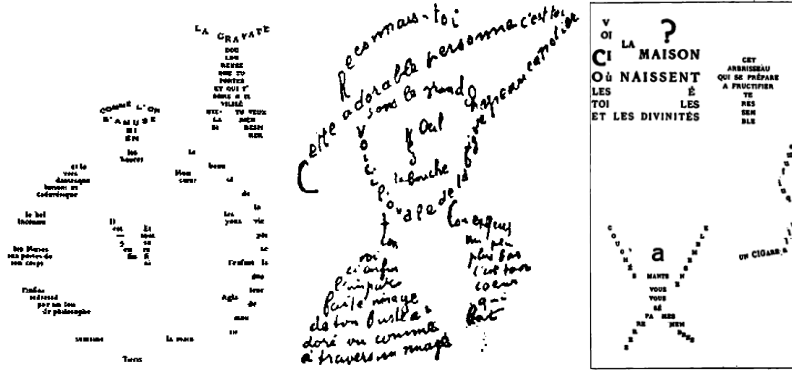 LA CRAVATE
DOU
LOU
REUSE
QUE TU
PORTES
ET QUI T'
ORNE O CI
VILISÉ
OTE- TU VEUX
LA BIEN
SI RESPI
RER
COMME L'ON
S'AMUSE
BI
EN
les
heures
et le
vers
dantesque
luisant et
cadavérique
le bel
inconnu
Il
est
5
en
fin
Et
tout
se
ra
fi
ni
les Muses
aux portes de
ton corps
l'infini
redressé
par un fou
de philosophe
semaine
la main
Tircis
Mon
cœur
le
beau
et
de
la
les
yeux
vie
pas
se
l'enfant
la
dou
leur
Agla
de
mou
rir
Reconnais-toi
Cette adorable personne c'est toi
Sous le grand chapeau canotier
Œil
Nez
la bouche
Voici l'ovale de ta figure
Ton cou exquis
Voici enfin
l'imparfaite image
de ton buste a
doré vu comme
à travers un nuage
Un peu
plus bas
c'est ton
cœur
qui
bat
V
OI
CI LA MAISON
Où NAISSENT
LES É
TOI LES
ET LES DIVINITÉS
?
CET
ARBRISSEAU
QUI SE PRÉPARE
A FRUCTIFIER
TE
RES
SEM
BLE
COUCHÉS ENSEMBLE
a
MANTS
VOUS
VOUS
SÉ
PA REZ
MES MEM
BRES
UN CIGARE